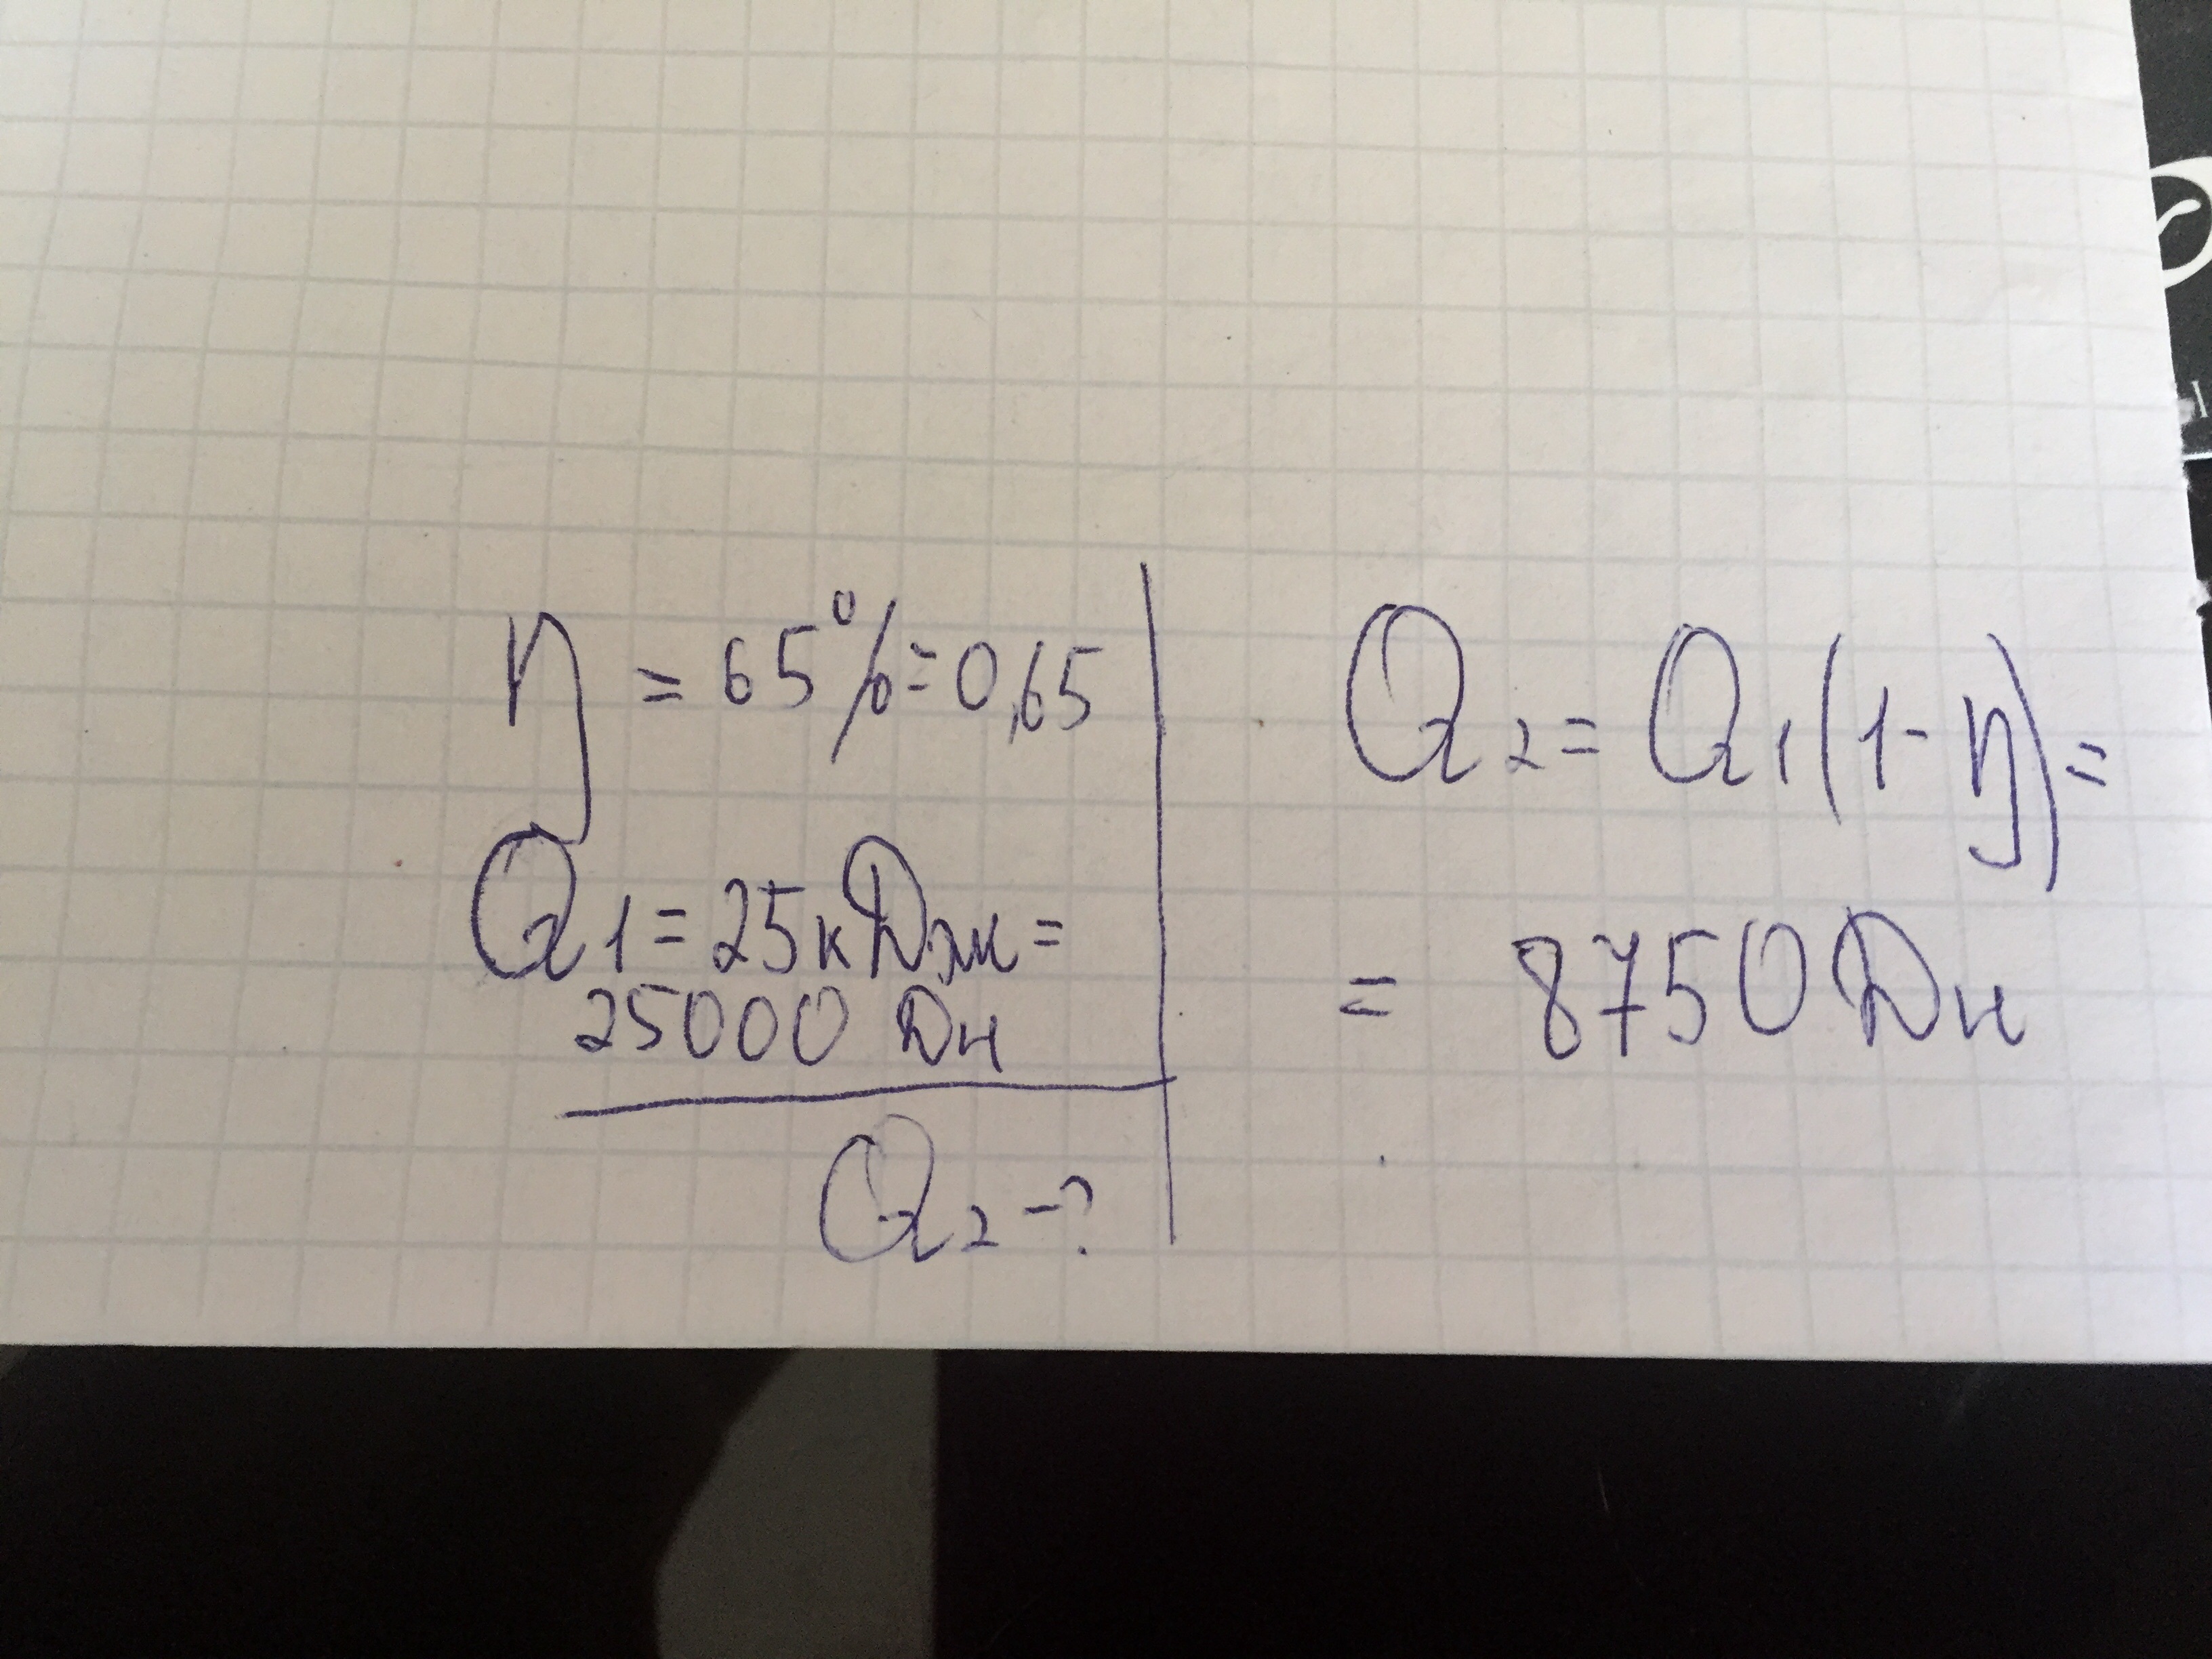 η = 65% = 0,65
Q₁ = 25 кДж =
25000 Дж
Q₂ - ?
Q₂ = Q₁(1 - η) =
= 8750 Дж